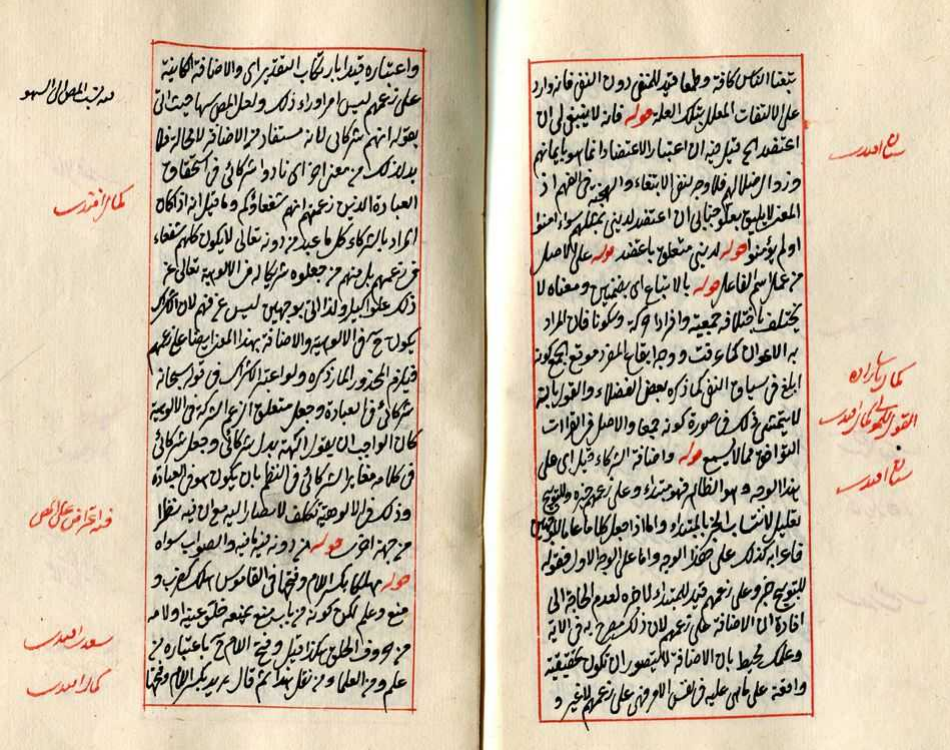 بتغنا الناس كافة وطمعا قيد للمنفى دون النفى فانه وارد
على الالتفات المعلل بتلك العلة قوله فانه لا ينبغى لى ان
اعتضد الخ قيل فيه ان اعتبار الاعتضاد انما هو بايمانهم
وزوال ضلالهم فلا وجه لنفى الابتغاء و فى الفهم اذ
المعنى لا يليق بعلو جنابى ان اعتضد لدينى بمثلهم سواء امنوا
او لم يؤمنوا قوله لدينى متعلق باعتضد قوله على الاصل
من عمل اسم الفاعل قوله بالاتباع اى بضمتين ومعناه لا
يختلف باختلافه جمعية وافرادا وحركة وسكونا فان المراد
به الاعوان كما عرفت ووجه ايقاع المفرد موقع الجمع كونه
ابلغ فى سياق النفى كما ذكره بعض الفضلاء والقول بانه
لا يتمشى ذلك فى صورة كونه جمعا والاصل فى القراات
التوافق مما لا يسمع قوله واضافة الشركاء قيل اى على
هذا الوجه وهو الظاهر فهو مبتداء وعلى زعمهم خبره وللتوبيخ
تعليل لانتساب الخبر بالمبتداء واما اذا جعل كلاما عاما للوجهين
فاعرابه كذلك على هذا الوجه واما على الوجه الاول فقوله
للتوبيخ خبر وعلى زعمهم قيد للمبتداء لا خبره لعدم الحاجة الى
افادة ان الاضافة على زعمهم لان ذلك مصرح به فى الاية
وعلمك محيط بان الاضافة لا يتصور ان تكون حقيقية
واقعة على ما هى عليه فى نفس الامر فهى على زعمهم لا غير و
سنان افندى
كمال پاشا زاده
القول لكمال افندى
سنان افندى
واعتباره قيدا بارتكاب التقدير اى والاضافة الكاينة
على زعمهم ليس امرا وراء ذلك ولعل المص سها حيث اتى
بقوله انهم شركائى لانه مستفاد من الاضافة لا محالة فلا
بد لذلك من معنى اخر اى نادوا شركائى فى استحقاق
العبادة الذين زعمتم انهم شفعاؤكم وما قيل انه اذ كان
المراد بالشركاء كل ما عبد من دونه تعالى لا يكون كلهم شفعاء
فى زعمهم بل منهم من جعلوه شريكا له فى الالوهية تعالى عن
ذلك علوا كبيرا ولذا اتى بوجهين ليس عن فهم لان الشرك
يكون ح فى الالوهية والاضافة بهذا المعنى ايضا على زعمهم
فيلزم المحذور المار ذكره ولو اعتبر الشرك فى قوله سبحانه
شركائى فى العبادة وجعل متعلق الزعم الشركة فى الالوهية
كان الواجب ان يقول الهته بدل شركائى وجعل شركائى
فى كلامه مغايرا لشركائى فى النظم بان يكون هو فى العبادة
وذلك فى الالوهية تكلف لا يصار اليه مع ان فيه نظرا
من جهة اخرى قوله من دونه فيه مافيه والصواب سواه
قوله مهلكا بكسر اللام وفتحها فى القاموس هلك كضرب و
منع وعلم لكن كونه من باب منع يمنعه خلو عينه ولامه
من حروف الحلق هكذا قيل وفتح اللام ح باعتباره من
علم ومن العلماء من نقل هذا ثم قال يريد بكسر اللام وفتحها
فيه نسبة المص الى السهو
كمال افندى
فيه اعتراض على المص
سعدى افندى
كمال افندى